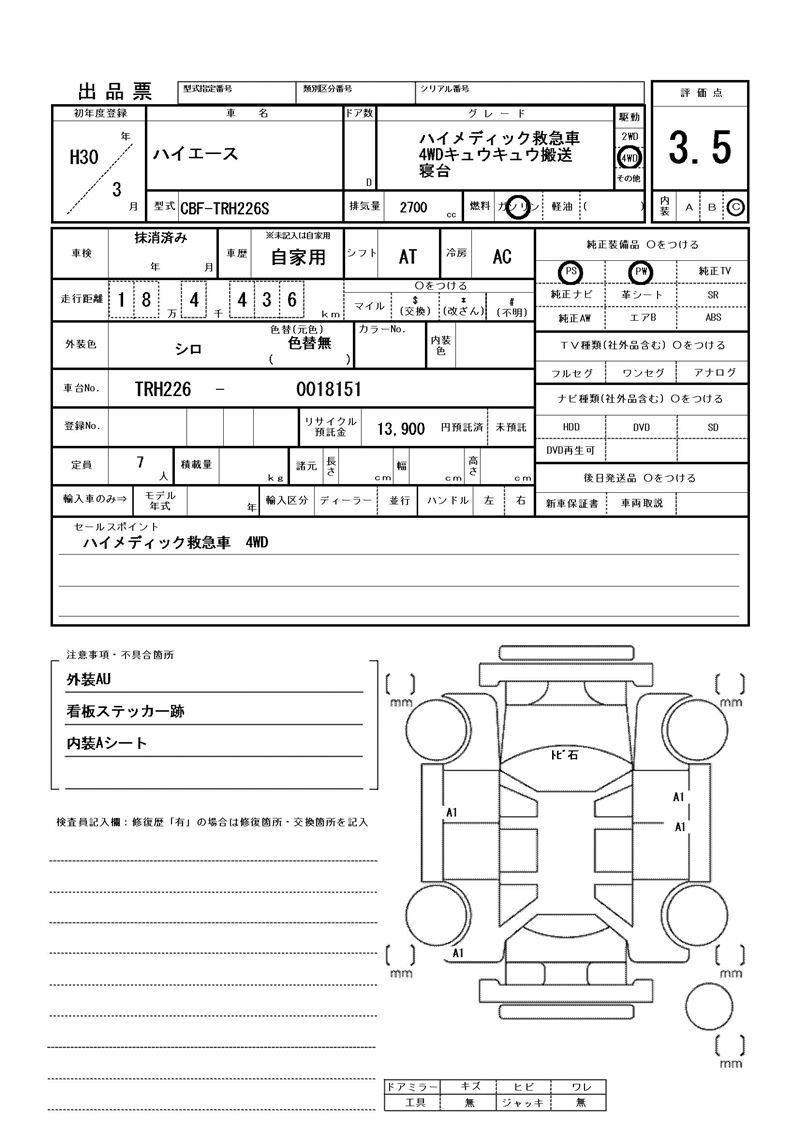 出品票
型式指定番号 類別区分番号 シリアル番号
評価点
初年度登録 車名 ドア数 グレード 駆動
H30 年 3 月
ハイエース
D
ハイメディック救急車
4WDキュウキュウ搬送
寝台
2WD
4WD
その他
3.5
型式 CBF-TRH226S 排気量 2700 cc 燃料 ガソリン 軽油 ( )
内装 A B C
車検 抹消済み 年 月 車歴 ※未記入は自家用 自家用 シフト AT 冷房 AC
走行距離 18万 4千 436 km
〇をつける
マイル $(交換) *(改ざん) #(不明)
外装色 シロ 色替(元色) 色替無 ( ) カラーNo. 内装色
車台No. TRH226 - 0018151
登録No. リサイクル預託金 13,900 円預託済 未預託
定員 7 人 積載量 kg 諸元 長さ cm 幅 cm 高さ cm
輸入車のみ⇒ モデル年式 年 輸入区分 ディーラー 並行 ハンドル 左 右
純正装備品 〇をつける
PS PW 純正TV
純正ナビ 革シート SR
純正AW エアB ABS
TV種類(社外品含む) 〇をつける
フルセグ ワンセグ アナログ
ナビ種類(社外品含む) 〇をつける
HDD DVD SD
DVD再生可
後日発送品 〇をつける
新車保証書 車両取説
セールスポイント
ハイメディック救急車 4WD
注意事項・不具合箇所
外装AU
看板ステッカー跡
内装Aシート
検査員記入欄：修復歴「有」の場合は修復箇所・交換箇所を記入
mm
mm
ﾄﾋﾞ石
A1
A1
A1
A1
mm
mm
mm
ドアミラー キズ ヒビ ワレ
工具 無 ジャッキ 無